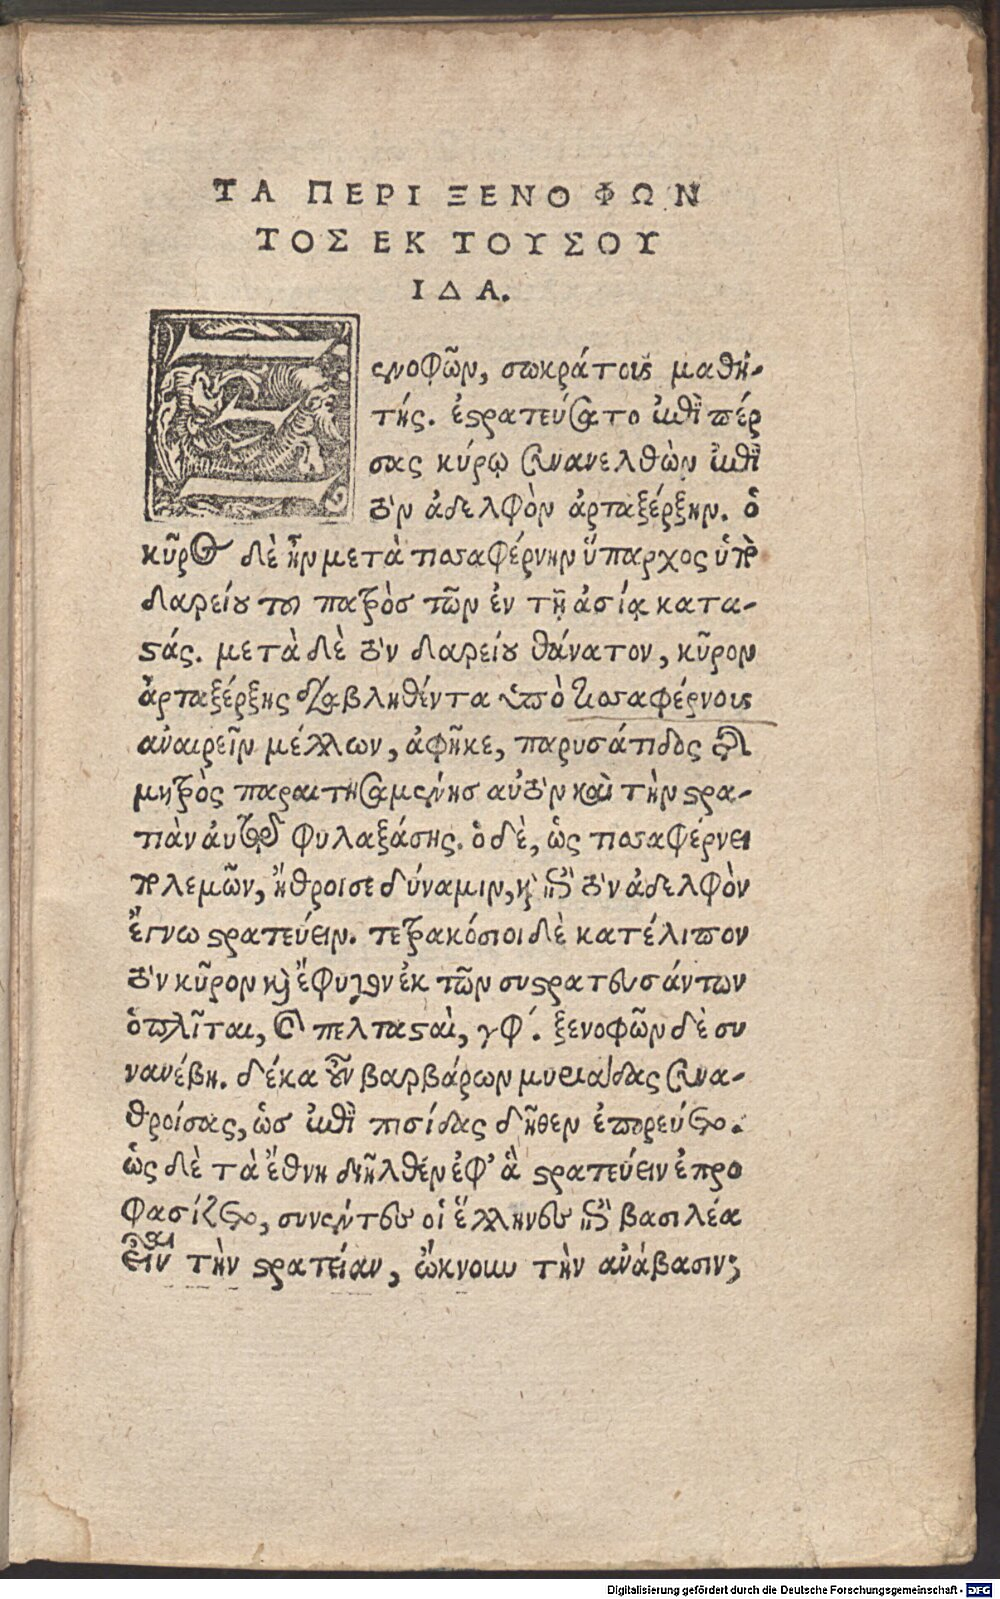 ΤΑ ΠΕΡΙ ΞΕΝΟΦΩΝ
ΤΟΣ ΕΚ ΤΟΥ ΣΟΥ
ΙΔΑ.
Ξενοφῶν, σωκράτους μαθη-
τής. ἐστρατεύσατο ἐπὶ πέρ
σας κύρῳ συνανελθὼν ἐπὶ
τὸν ἀδελφὸν ἀρταξέρξην. ὁ
κῦρος δὲ ἦν μετὰ τισαφέρνην ὕπαρχος ὑπὸ
δαρείου τοῦ πατρὸσ τῶν ἐν τῇ ἀσίᾳ κατα-
στάς. μετὰ δὲ τὸν δαρείου θάνατον, κῦρον
ἀρταξέρξης διαβληθέντα ὑπὸ τισαφέρνους
ἀναιρεῖν μέλλων, ἀφῆκε, παρυσάτιδος τῆς
μητρὸς παραιτησαμένησ αὐτὸν καὶ τὴν στρα-
τιὰν αὐτοῦ φυλαξάσης. ὁ δὲ, ὡς τισαφέρνει
πολεμῶν, ἤθροισε δύναμιν, καὶ ἐπὶ τὸν ἀδελφὸν
ἔγνω στρατεύειν. τετρακόσιοι δὲ κατέλιπον
τὸν κῦρον καὶ ἔφυγον ἐκ τῶν συστρατευσάντων
ὁπλῖται, καὶ πελτασταὶ, γφʹ. ξενοφῶν δὲ συ
νανέβη. δέκα οὖν βαρβάρων μυριάδας συνα-
θροίσας, ὡσ ἐπὶ πισίδας δῆθεν ἐπορεύετο.
ὡς δὲ τὰ ἔθνη διῆλθεν ἐφ' ἃ στρατεύειν ἐπρο
φασίζετο, συνέντες οἱ ἕλληνες ἐπὶ βασιλέα
εἶναι τὴν στρατείαν, ὤκνουν τὴν ἀνάβασιν;
Digitalisierung gefördert durch die Deutsche Forschungsgemeinschaft - DFG